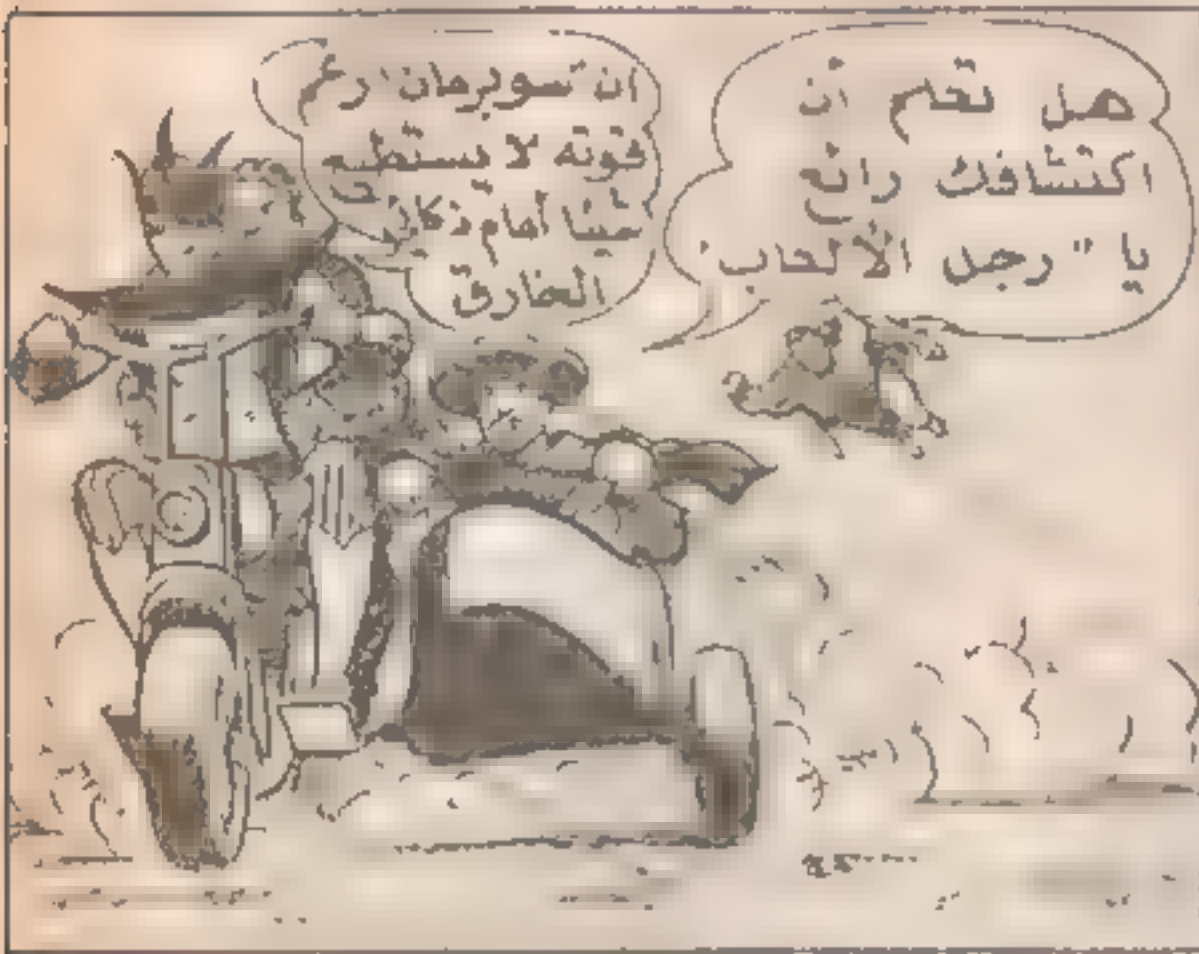 هل تعلم أن
اكتشافك رائع
يا "رجل الألعاب"
ان "سوبرمان" رغم
قوته لا يستطيع
شيئا أمام ذكائك
الخارق